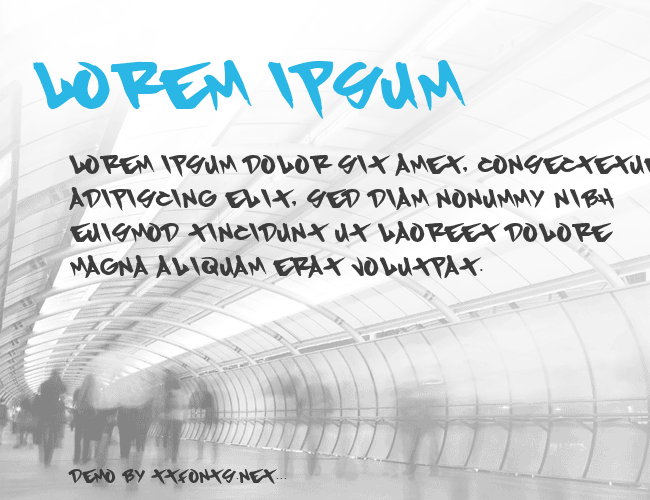 LOREM IPSUM
LOREM IPSUM DOLOR SIT AMET, CONSECTETUE
ADIPISCING ELIT, SED DIAM NONUMMY NIBH
EUISMOD TINCIDUNT UT LAOREET DOLORE
MAGNA ALIQUAM ERAT VOLUTPAT.
DEMO BY TTFONTS.NET...